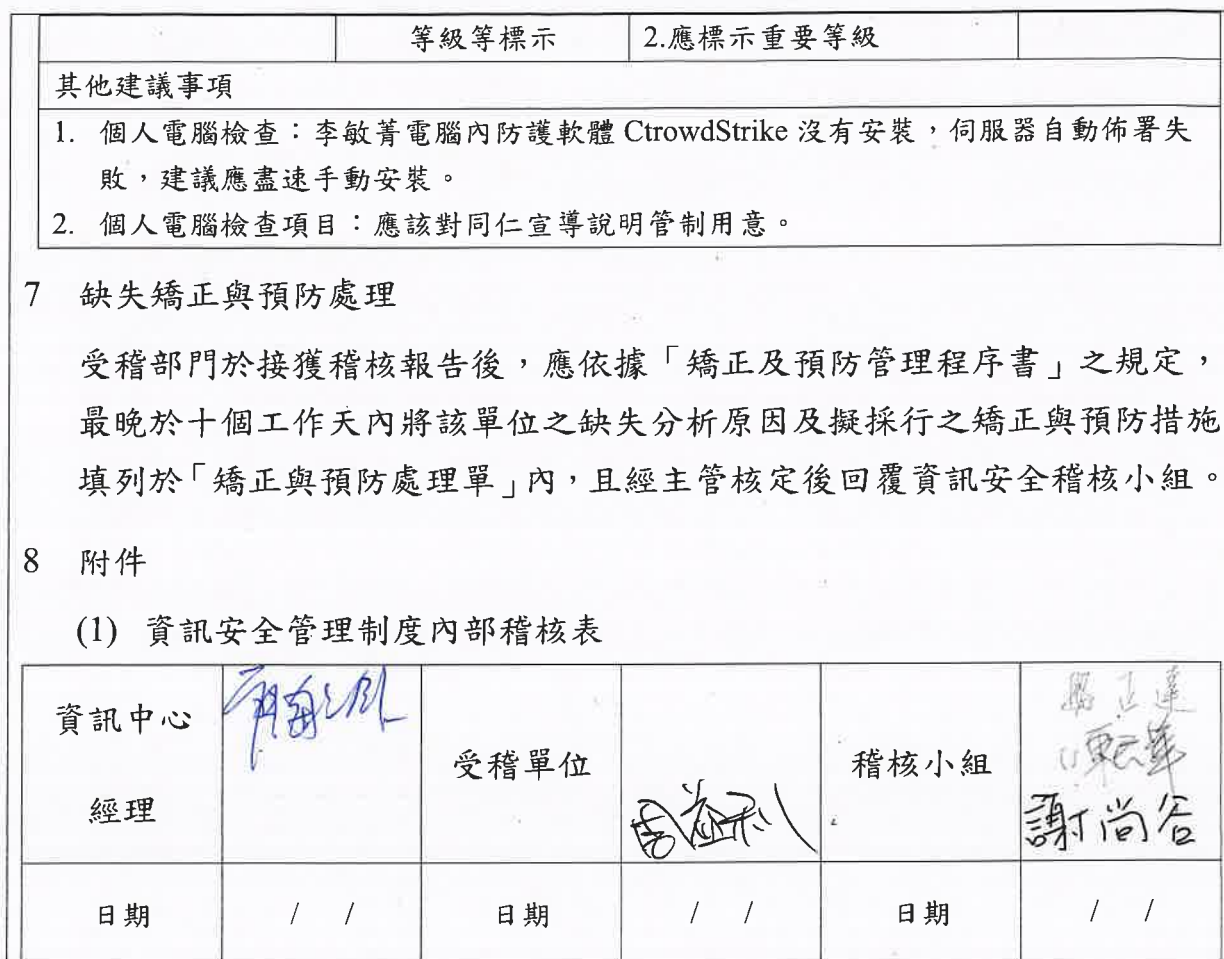 等級等標示 2.應標示重要等級
其他建議事項
1. 個人電腦檢查：李敏菁電腦內防護軟體 CtrowdStrike 沒有安裝，伺服器自動佈署失
敗，建議應盡速手動安裝。
2. 個人電腦檢查項目：應該對同仁宣導說明管制用意。
7 缺失矯正與預防處理
受稽部門於接獲稽核報告後，應依據「矯正及預防管理程序書」之規定，
最晚於十個工作天內將該單位之缺失分析原因及擬採行之矯正與預防措施
填列於「矯正與預防處理單」內，且經主管核定後回覆資訊安全稽核小組。
8 附件
(1) 資訊安全管理制度內部稽核表
資訊中心
經理
受稽單位
稽核小組
謝尚谷
日期 / / 日期 / / 日期 / /